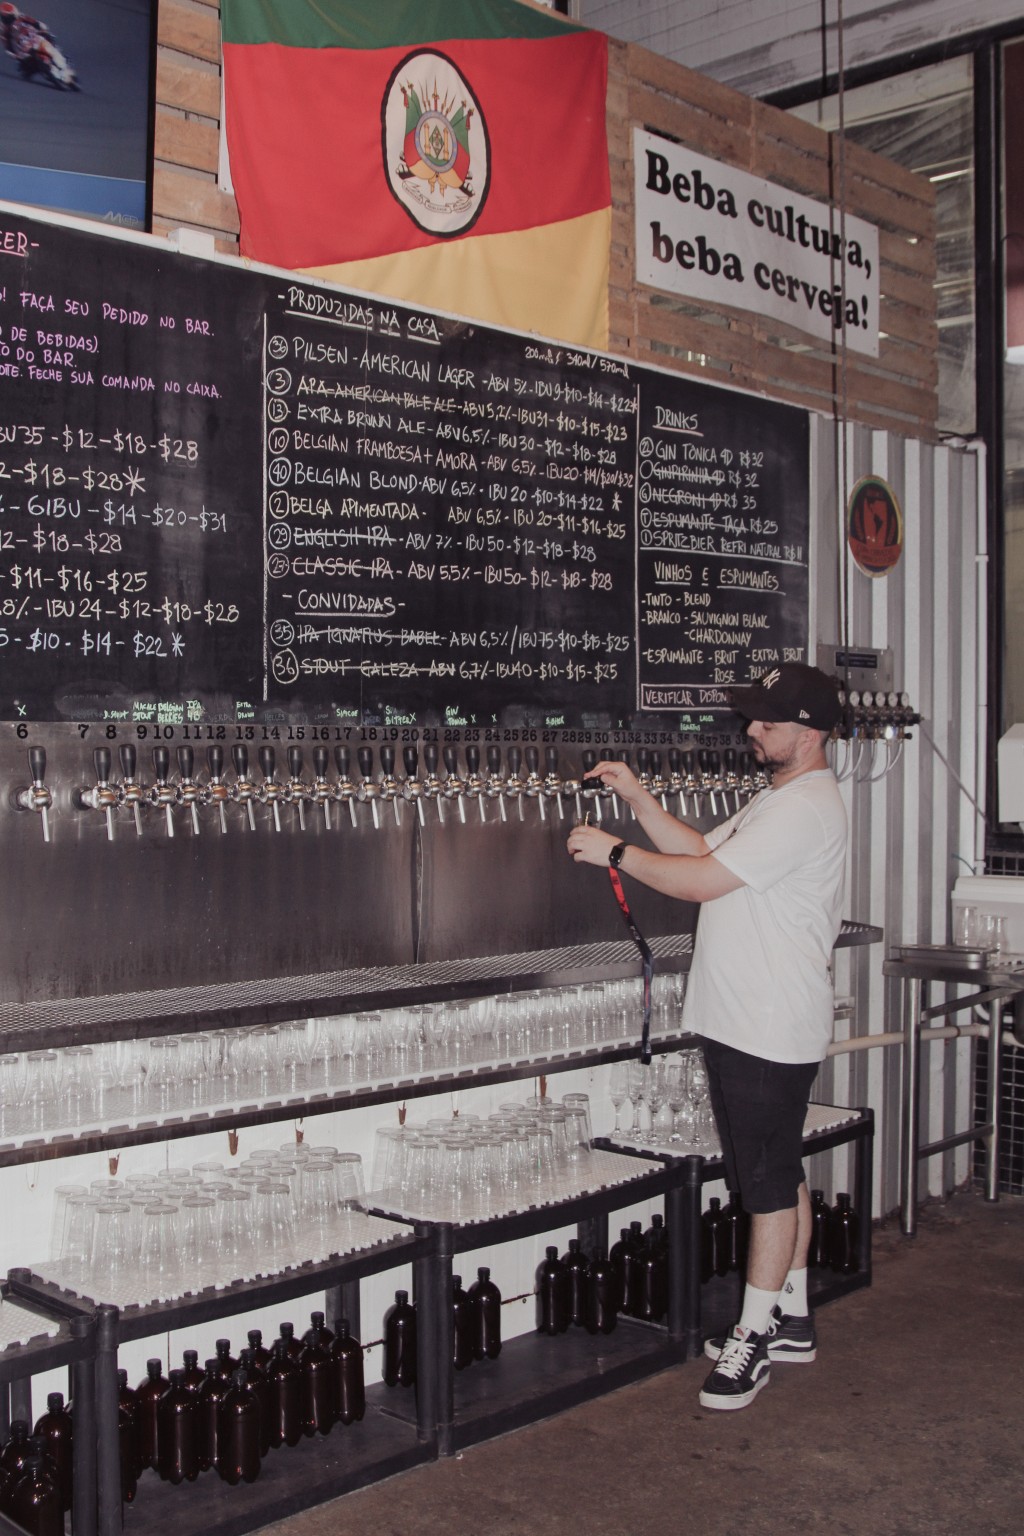 Beba cultura,
beba cerveja!
FAÇA SEU PEDIDO NO BAR.
DE BEBIDAS).
DO BAR.
FECHE SUA COMANDA NO CAIXA.
35-$12-$18-$28
-$18-$28*
- 6IBU-$14-$20-$31
-$18-$28
-$11-$16-$25
8%-IBU 24-$12-$18-$28
-$10-$14-$22*
-PRODUZIDAS NA CASA-
200ml / 340ml / 570ml
36 PILSEN-AMERICAN LAGER -ABV 5%-IBU 9-$10-$14-$22*
3 APA-AMERICAN PALE ALE-ABV 5,2%-IBU31-$10-$15-$23
13 EXTRA BROWN ALE-ABV 6,5%-IBU 30-$12-$18-$28
10 BELGIAN FRAMBOESA+AMORA-ABV 6,5%-IBU20-$14/$20/$32
40 BELGIAN BLOND-ABV 6,5%-IBU 20-$10-$14-$22 *
2 BELGA APIMENTADA- ABV 6,5%-IBU 20-$11-$16-$25
29 ENGLISH IPA-ABV 7%-IBU 50-$12-$18-$28
27 CLASSIC IPA-ABV 5,5%-IBU50-$12-$18-$28
-CONVIDADAS-
35 IPA IGNATIUS BABEL-ABV 6,5%/IBU75-$10-$15-$25
36 STOUT GALEZA ABV 6,7%-IBU40-$10-$15-$25
DRINKS
GIN TÔNICA 4D R$32
CAIPIRINHA 4D R$32
NEGRONI 4D R$35
ESPUMANTE TAÇA R$25
SPRITZBIER REFRI NATURAL
VINHOS E ESPUMANTES
-TINTO-BLEND
-BRANCO-SAUVIGNON BLANC
-CHARDONNAY
-ESPUMANTE-BRUT-EXTRA BRUT
-ROSE
VERIFICAR
6 7 8 9 10 11 12 13 14 15 16 17 18 19 20 21 22 23 24 25 26 27 28 29 30 31 32 33 34 35 36 37 38